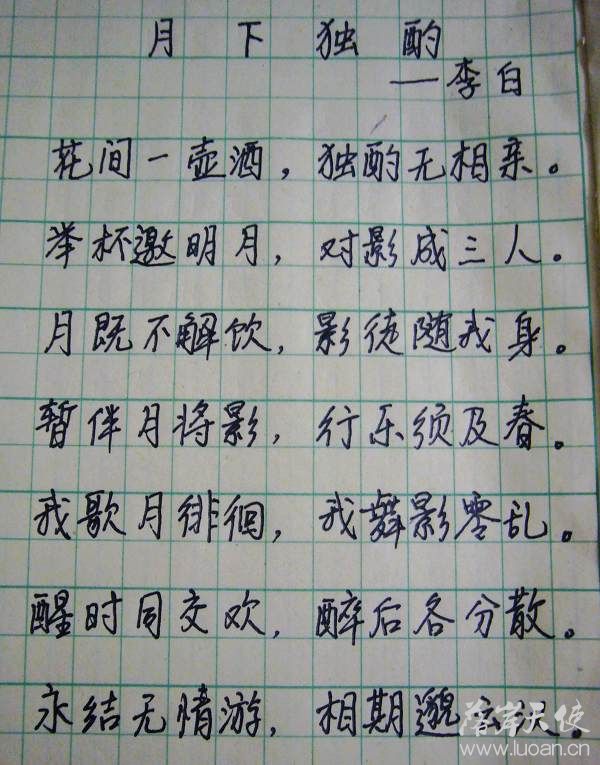 月下独酌
——李白
花间一壶酒，独酌无相亲。
举杯邀明月，对影成三人。
月既不解饮，影徒随我身。
暂伴月将影，行乐须及春。
我歌月徘徊，我舞影零乱。
醒时同交欢，醉后各分散。
永结无情游，相期邈云汉。
落岸天使
www.luoan.cn